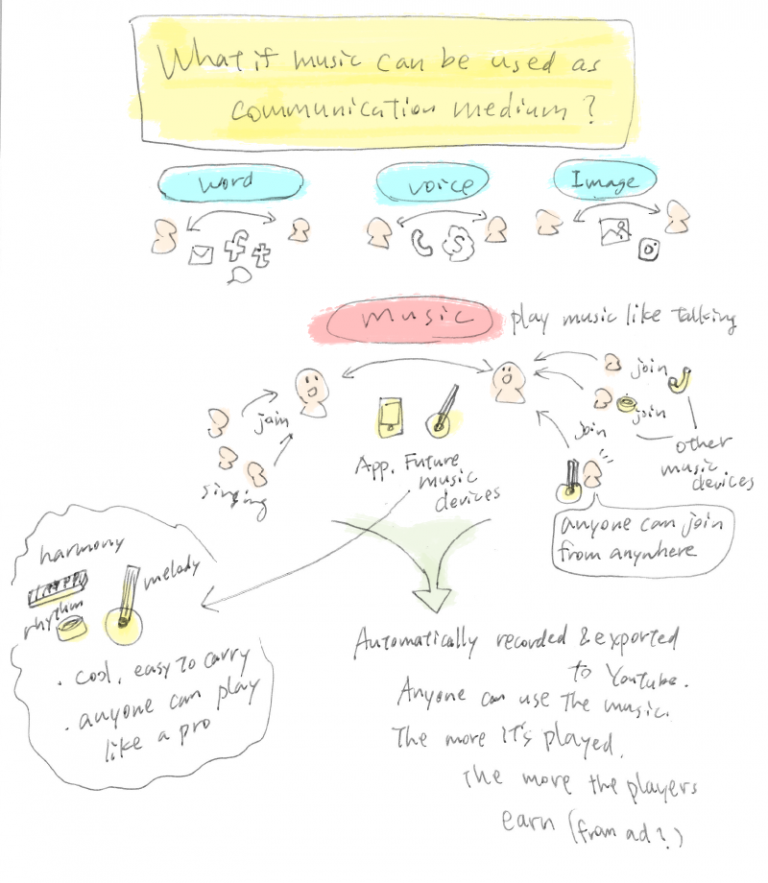 What if music can be used as
communication medium?
word
voice
Image
music
play music like talking
join
join
join
join
singing
App. Future
music
devices
other
music
devices
anyone can join
from anywhere
harmony
melody
rhythm
. cool, easy to carry
. anyone can play
like a pro
Automatically recorded & exported
to Youtube.
Anyone can use the music.
The more it's played,
the more the players
earn (from ad?)